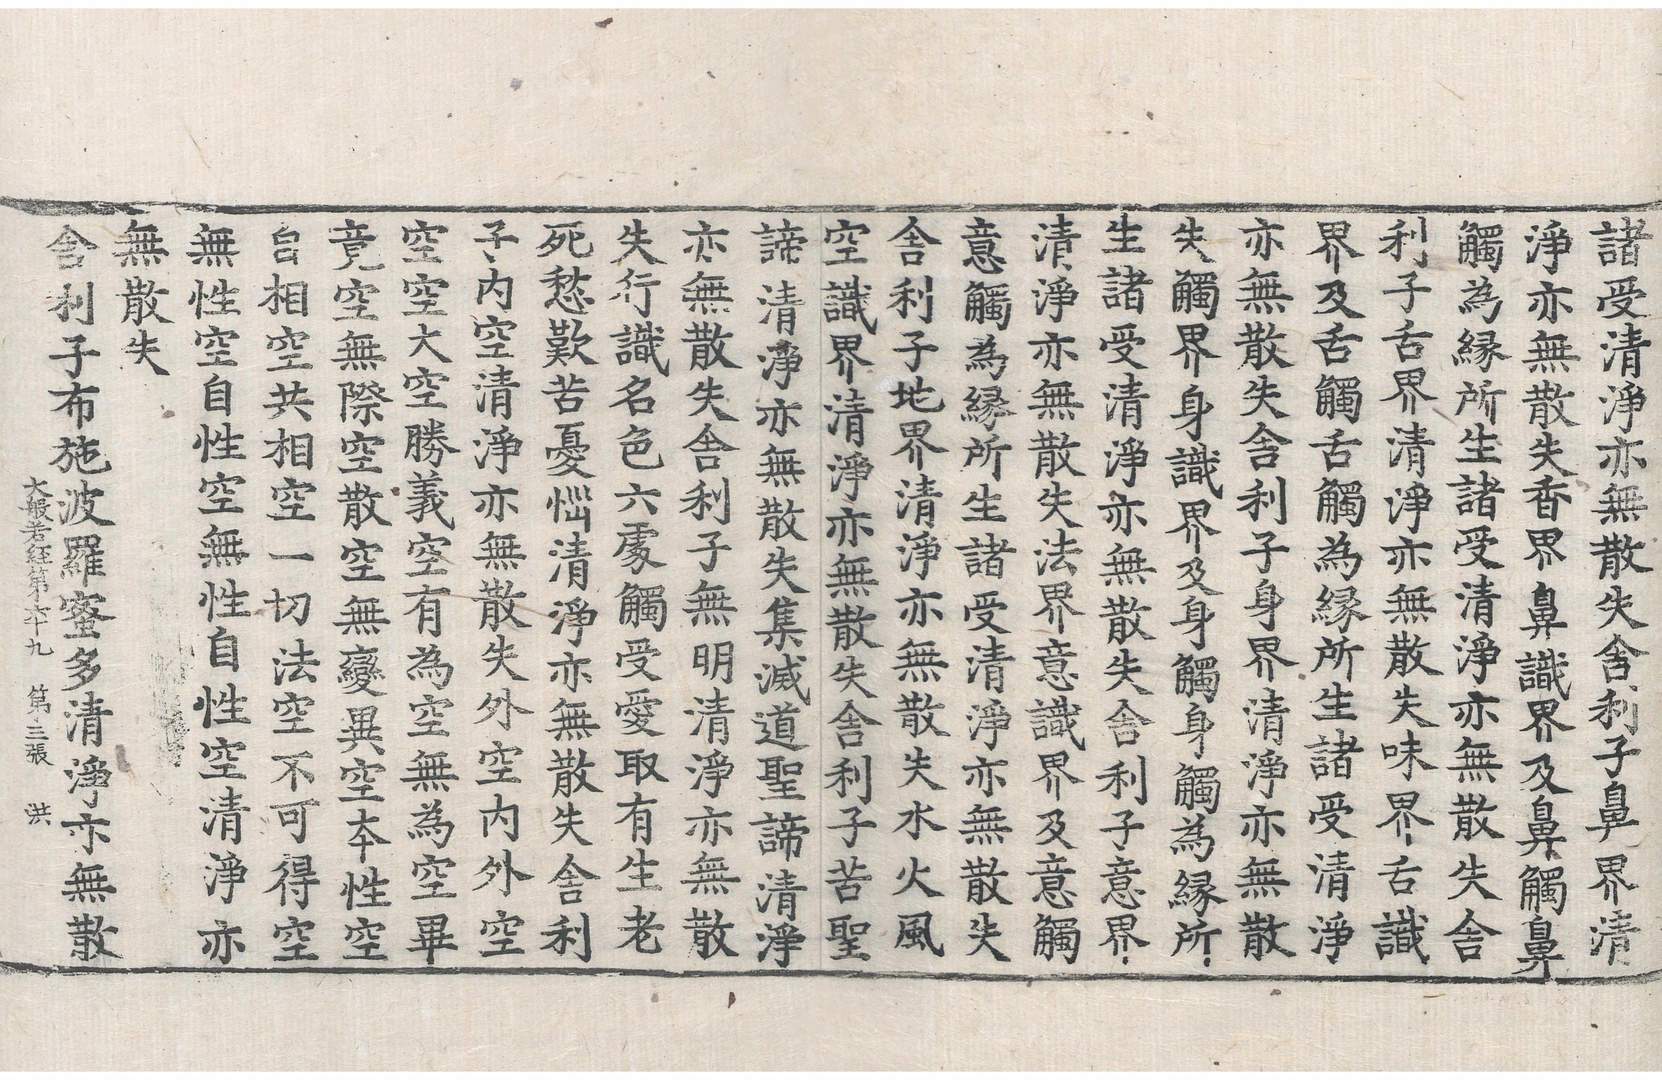 諸受清淨亦無散失舎利子鼻界清
淨亦無散失香界鼻識界及鼻觸鼻
觸為縁所生諸受清淨亦無散失舎
利子舌界清淨亦無散失味界舌識
界及舌觸舌觸為縁所生諸受清淨
亦無散失舎利子身界清淨亦無散
失觸界身識界及身觸身觸為縁所
生諸受清淨亦無散失舎利子意界
清淨亦無散失法界意識界及意觸
意觸為縁所生諸受清淨亦無散失
舎利子地界清淨亦無散失水火風
空識界清淨亦無散失舎利子苦聖
諦清淨亦無散失集滅道聖諦清淨
亦無散失舎利子無明清淨亦無散
失行識名色六處觸受愛取有生老
死愁歎苦憂惱清淨亦無散失舎利
子內空清淨亦無散失外空內外空
空空大空勝義空有為空無為空畢
竟空無際空散空無變異空本性空
自相空共相空一切法空不可得空
無性空自性空無性自性空清淨亦
無散失
舎利子布施波羅蜜多清淨亦無散
大般若経第六十九 第三張 洪